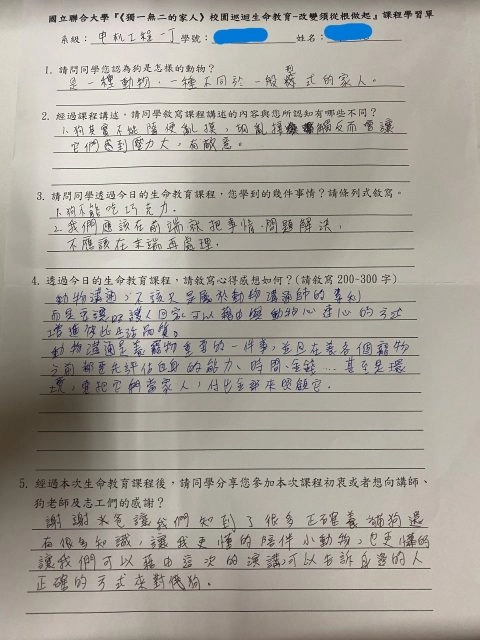 國立聯合大學『《獨一無二的家人》校園巡迴生命教育-改變須從根做起』課程學習單
系級：電机工程一丁學號： 姓名：
1. 請問同學您認為狗是怎樣的動物？
是一種動物，一種不同於一般形式的家人。
2. 經過課程講述，請同學敘寫課程講述的內容與您所認知有哪些不同？
1.狗其實不能隨便亂摸，胡亂摸觸反而會讓
它們感到壓力大，有敵意。
3. 請問同學透過今日的生命教育課程，您學到的幾件事情？請條列式敘寫。
1.狗不能吃巧克力.
2.我們應該在前端就把事情、問題解決，
不應該在末端再處理.
4. 透過今日的生命教育課程，請敘寫心得感想如何？(請敘寫 200-300 字)
動物溝通，不該只是屬於動物溝通師的專利
而是應該讓人回家可以藉由與動物心連心的方式
增進彼此生活品質。
動物溝通是養寵物重要的一件事，並且在養各個寵物
之前都要先評估自身的能力、時間、金錢…甚至是環
境，要把它們當家人，付出全部來照顧它.
5. 經過本次生命教育課程後，請同學分享您參加本次課程初衷或者想向講師、
狗老師及志工們的感謝？
謝謝米爸讓我們知到了很多正確養貓狗還
有很多知識，讓我更懂的陪伴小動物，也更懂的
讓我們可以藉由這次的演講，可以告訴身邊的人
正確的方式來對待狗.